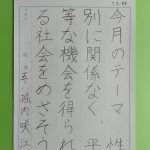 今月のテーマ　性
別に関係なく　平
等な機会を得られ
る社会をめざそう
堀内咲江